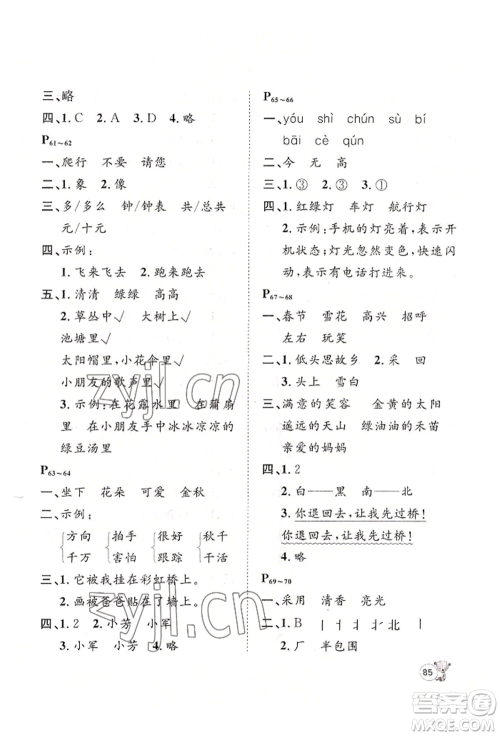 三、略
四、1. C　2. A　3. D　4. 略
P61~62
一、爬行　不要　请您
二、1. 象　2. 像
三、多/多么　钟/钟表　共/总共
元/十元
四、示例：
1. 飞来飞去　2. 跑来跑去
五、1. 清清　绿绿　高高
2. 草丛中√　大树下√
池塘里√
太阳帽里√，小花伞里√
小朋友的歌声里√
3. 示例：在花露水里　在蒲扇
里　在小朋友手中冰冰凉凉的
绿豆汤里
P63~64
一、坐下　花朵　可爱　金秋
二、示例：
方向　拍手　你好　秋千
千万　害怕　跟踪　干活
三、1. 它被我挂在彩虹桥上。
2. 画被爸爸贴在了墙上。
四、1. 2　2. 小芳　小军
3. 小军　小芳　4. 略
P65~66
一、yóu　shì　chún　sù　bí
bāi　cè　qún
二、今　无　高
三、1. ③　2. ③　3. ①
四、1. 红绿灯　车灯　航行灯
2. 示例：手机的灯亮着，表示
开机状态；灯光忽然变色，快速闪
动，表示有电话打进来。
P67~68
一、春节　雪花　高兴　招呼
左右　玩笑
二、1. 低头思故乡　2. 采　回
3. 上　雪白
三、满意的笑容　金黄的太阳
遥远的天山　绿油油的禾苗
亲爱的妈妈
四、1. 2
2. 白——黑　南——北
3. 你退回去，让我先过桥！
你退回去，让我先过桥！
4. 略
P69~70
一、采用　清香　亮光
二、1. B
2. 厂　半包围
85
zyjl.cn
答案圈